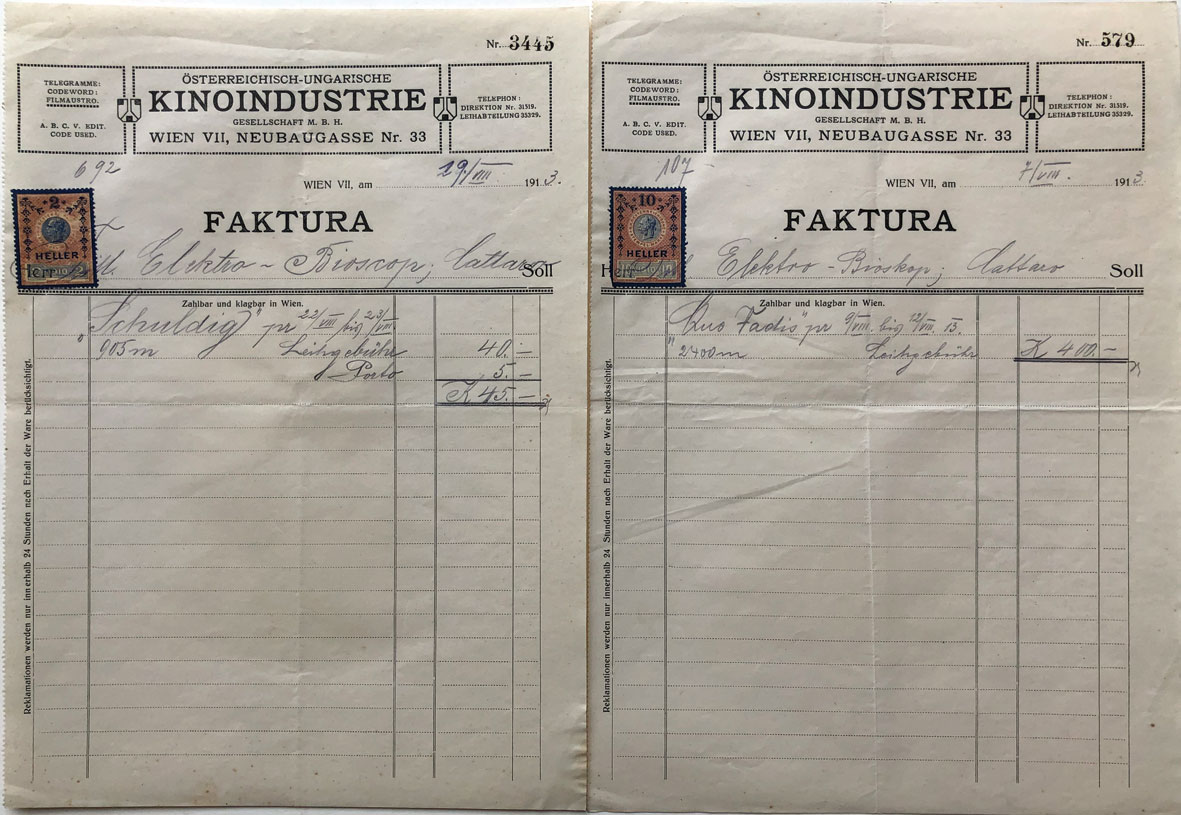 Nr. 3445
TELEGRAMME:
CODEWORD:
FILMAUSTRO.
A. B. C. V. EDIT.
CODE USED.
ÖSTERREICHISCH-UNGARISCHE
KINOINDUSTRIE
GESELLSCHAFT M. B. H.
WIEN VII, NEUBAUGASSE Nr. 33
TELEPHON:
DIREKTION Nr. 31519.
LEIHABTEILUNG 35329.
692
WIEN VII, am 29/VIII 1913.
2
HELLER
FAKTURA
Elektro-Bioscop, Cattaro Soll
Zahlbar und klagbar in Wien.
"Schuldig" pr 22/VIII bis 23/VIII.
905m Leihgebühr 40.—
Porto 5.—
K 45.—
Reklamationen werden nur innerhalb 24 Stunden nach Erhalt der Ware berücksichtigt.
Nr. 579
TELEGRAMME:
CODEWORD:
FILMAUSTRO.
A. B. C. V. EDIT.
CODE USED.
ÖSTERREICHISCH-UNGARISCHE
KINOINDUSTRIE
GESELLSCHAFT M. B. H.
WIEN VII, NEUBAUGASSE Nr. 33
TELEPHON:
DIREKTION Nr. 31519.
LEIHABTEILUNG 35329.
107
WIEN VII, am 7/VIII. 1913
10
HELLER
FAKTURA
Elektro-Bioskop; Cattaro Soll
Zahlbar und klagbar in Wien.
"Quo Vadis" pr 9/VIII. bis 12/VIII. 13.
2400m Leihgebühr K 400.—
Reklamationen werden nur innerhalb 24 Stunden nach Erhalt der Ware berücksichtigt.